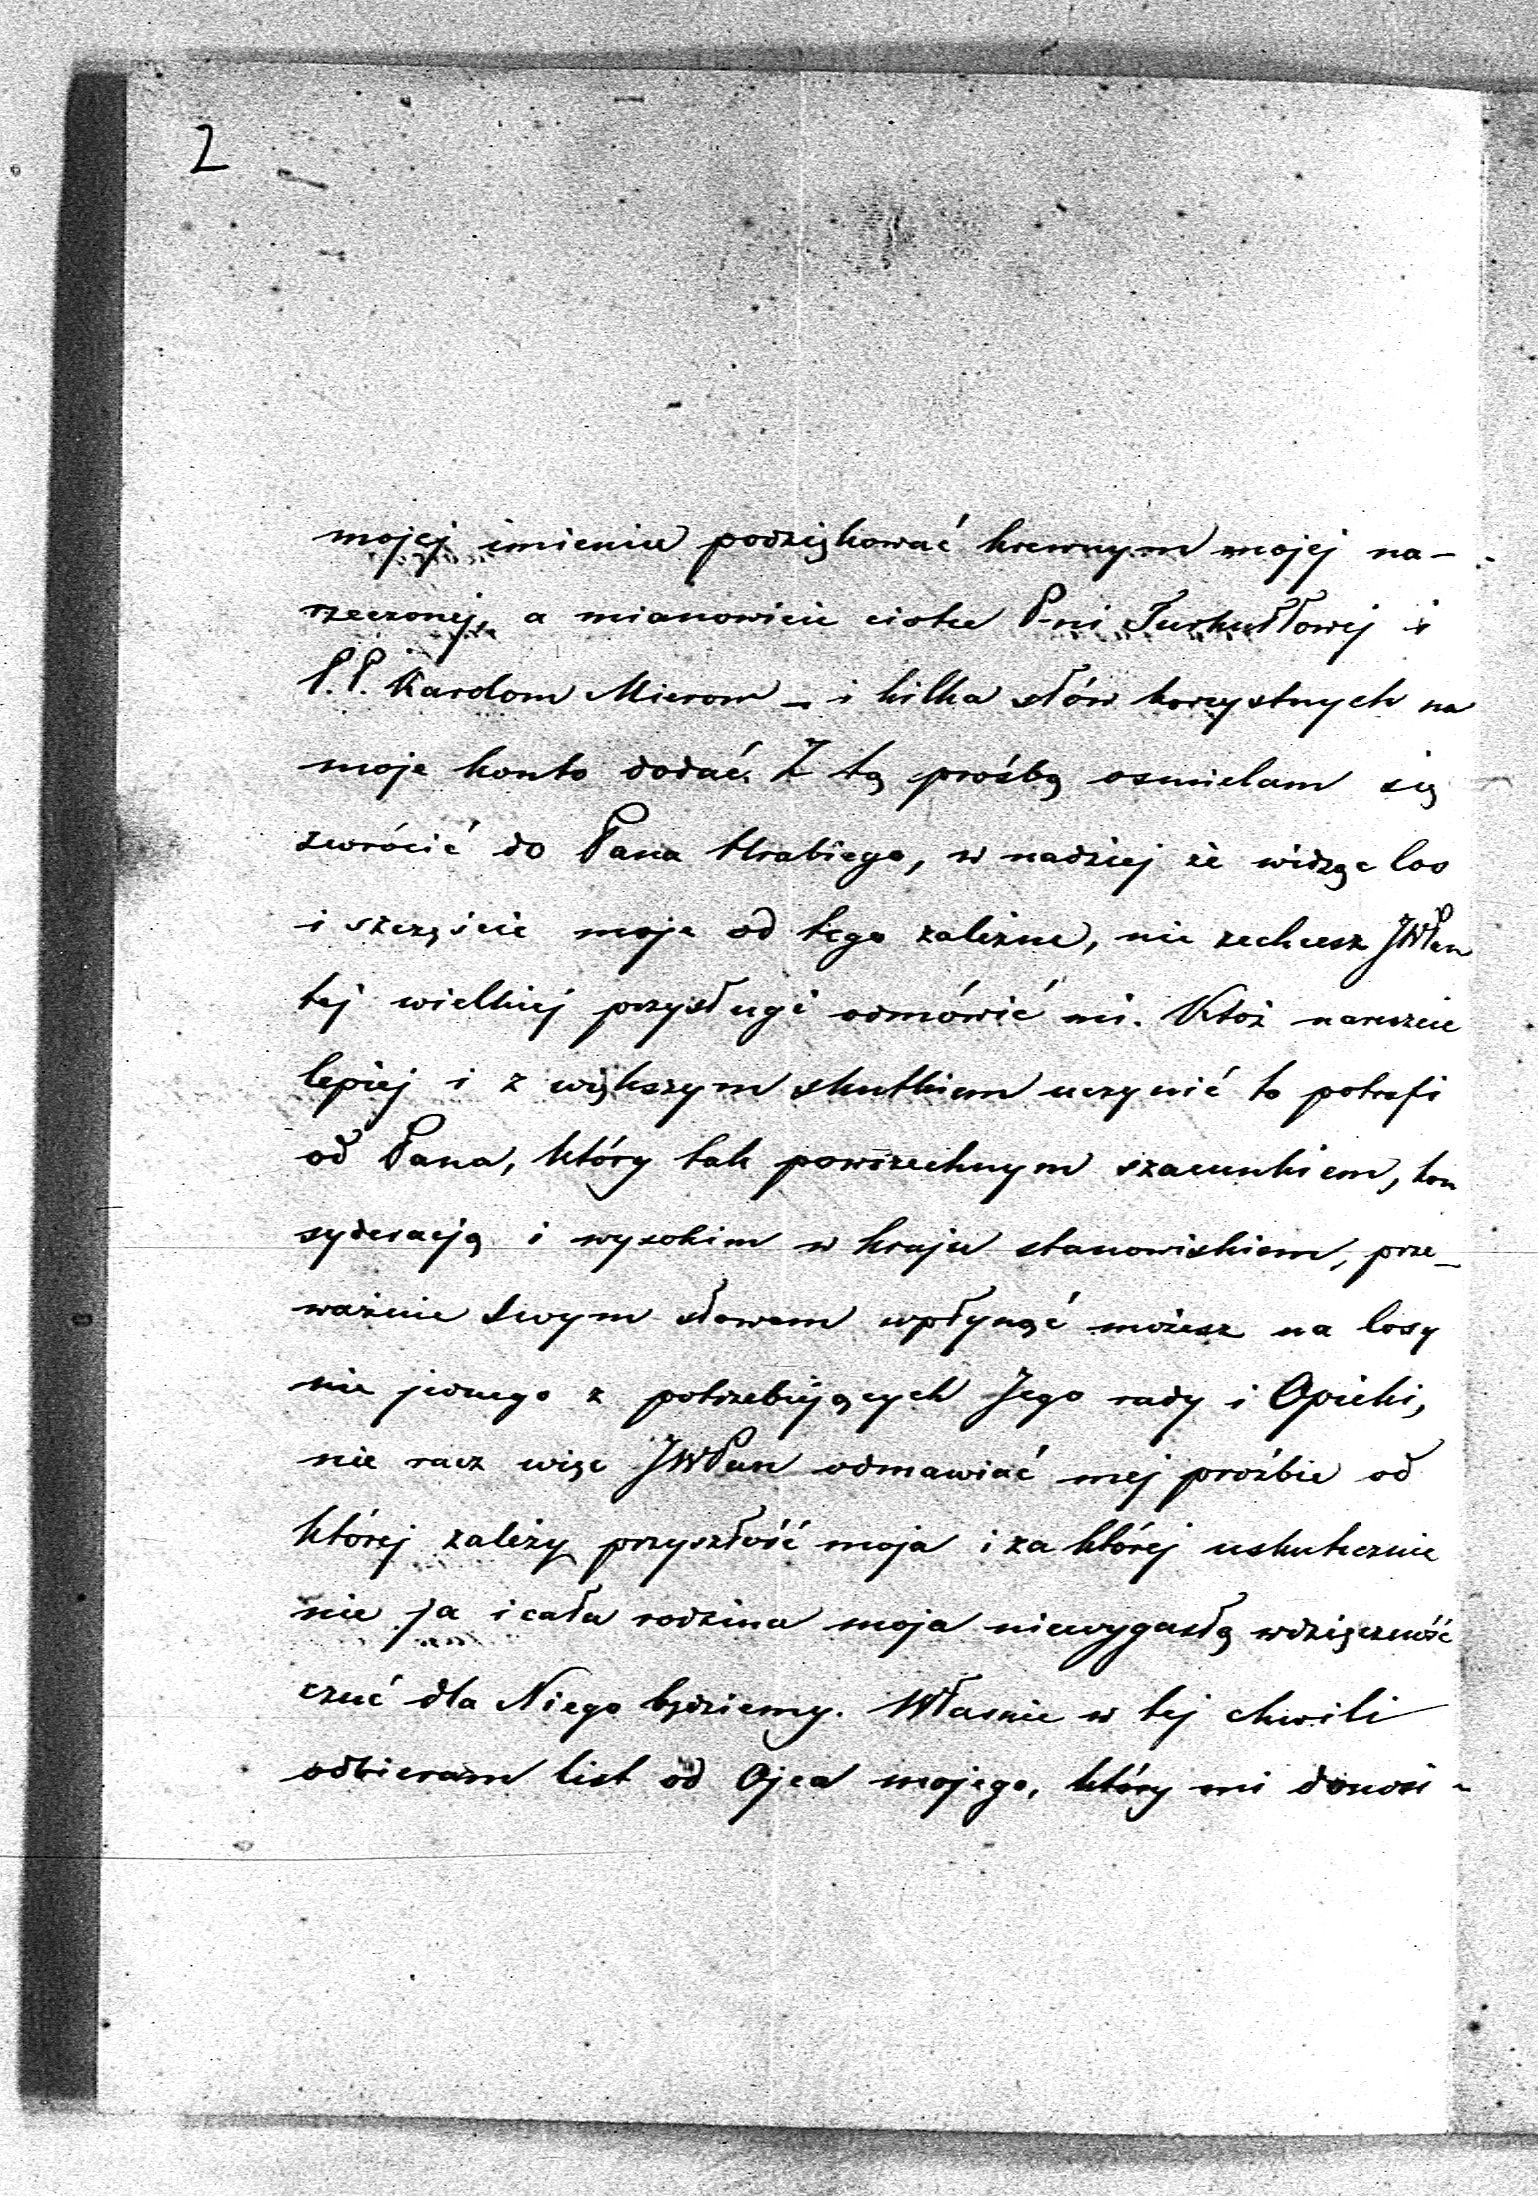 2
mojej imieniu podziękować krewnym mojej na-
rzeczonej, a mianowicie ciotce P-ni Turkułłowej i
P.P. Karolom Mierom – i kilka słów korzystnych na
moje konto dodać. Z tą prośbą osmielam się
zwrócić do Pana Hrabiego, w nadziej że widząc los
i szczęście moje od tego zależne, nie zechcesz JWPan
tej wielkiej przysługi odmówić mi. Któż nareszcie
lepiej i z większym skutkiem uczynić to potrafi
od Pana, który tak powszechnym szacunkiem, kon
syderacją i wysokim w kraju stanowiskiem, prze-
ważnie swym słowem wpłynąć możesz na losy
nie jednego z potrzebujących Jego rady i Opieki,
nie racz więc JWPan odmawiać mej prośbie od
której zależy przyszłość moja i za której uskutecznie
nie ja i cała rodzina moja niewygasłą wdzięczność
czuć dla Niego będziemy. Własnie w tej chwili
odbieram list od Ojca mojego, który mi donosi-